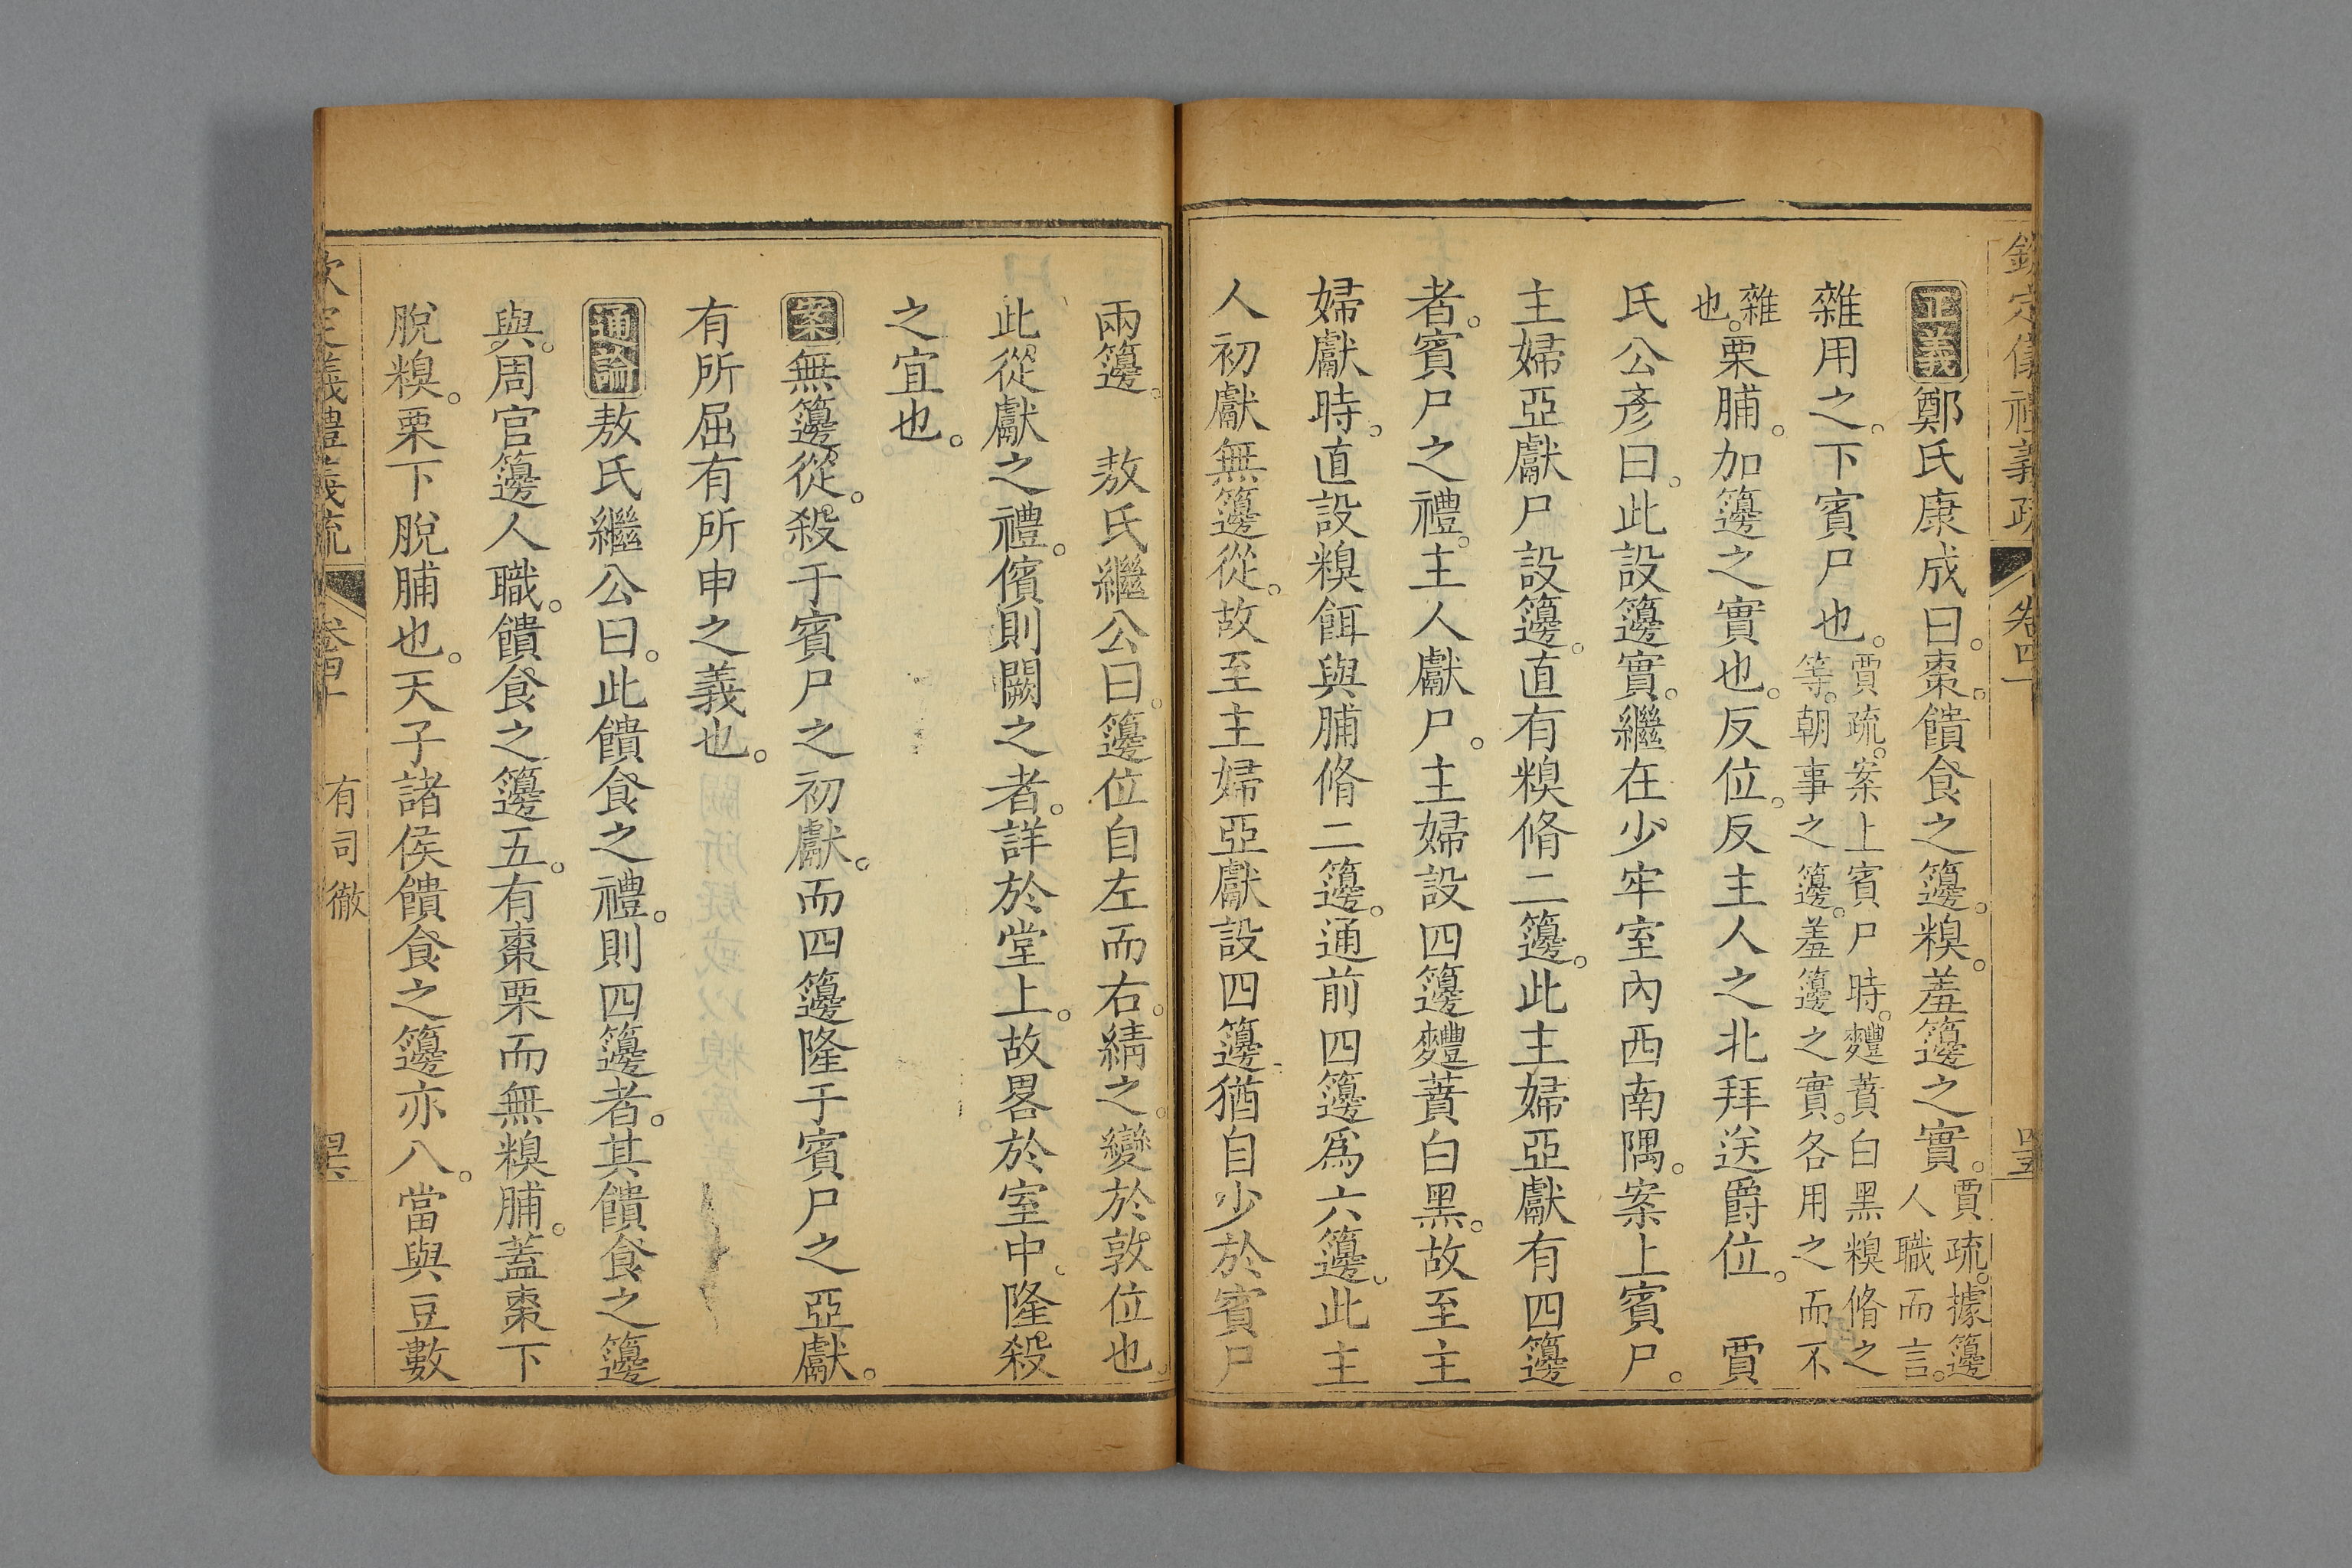 欽定儀禮義疏 卷四十
正義鄭氏康成曰。棗。饋食之籩。糗。羞籩之實。賈疏。據籩人職而言。
雜用之。下賓尸也。賈疏。案上賓尸時。麷蕡白黑糗脩之等。朝事之籩。羞籩之實。各用之而不
雜也。栗脯。加籩之實也。反位。反主人之北拜送爵位。 賈
氏公彥曰。此設籩實。繼在少牢室內西南隅。案上賓尸。
主婦亞獻尸設籩。直有糗脩二籩。此主婦亞獻有四籩
者。賓尸之禮。主人獻尸。主婦設四籩麷蕡白黑。故至主
婦獻時。直設糗餌與脯脩二籩。通前四籩爲六籩。此主
人初獻無籩從。故至主婦亞獻設四籩猶自少於賓尸
兩籩。 敖氏繼公曰。籩位自左而右。綪之。變於敦位也。
此從獻之禮。儐則闕之者。詳於堂上。故畧於室中。隆殺
之宜也。
案無籩從。殺于賓尸之初獻。而四籩隆于賓尸之亞獻。
有所屈有所申之義也。
通論敖氏繼公曰。此饋食之禮。則四籩者。其饋食之籩
與。周官籩人職。饋食之籩五。有棗栗而無糗脯。蓋棗下
脫糗。栗下脫脯也。天子諸侯饋食之籩亦八。當與豆數
欽定儀禮義疏 卷四十 有司徹